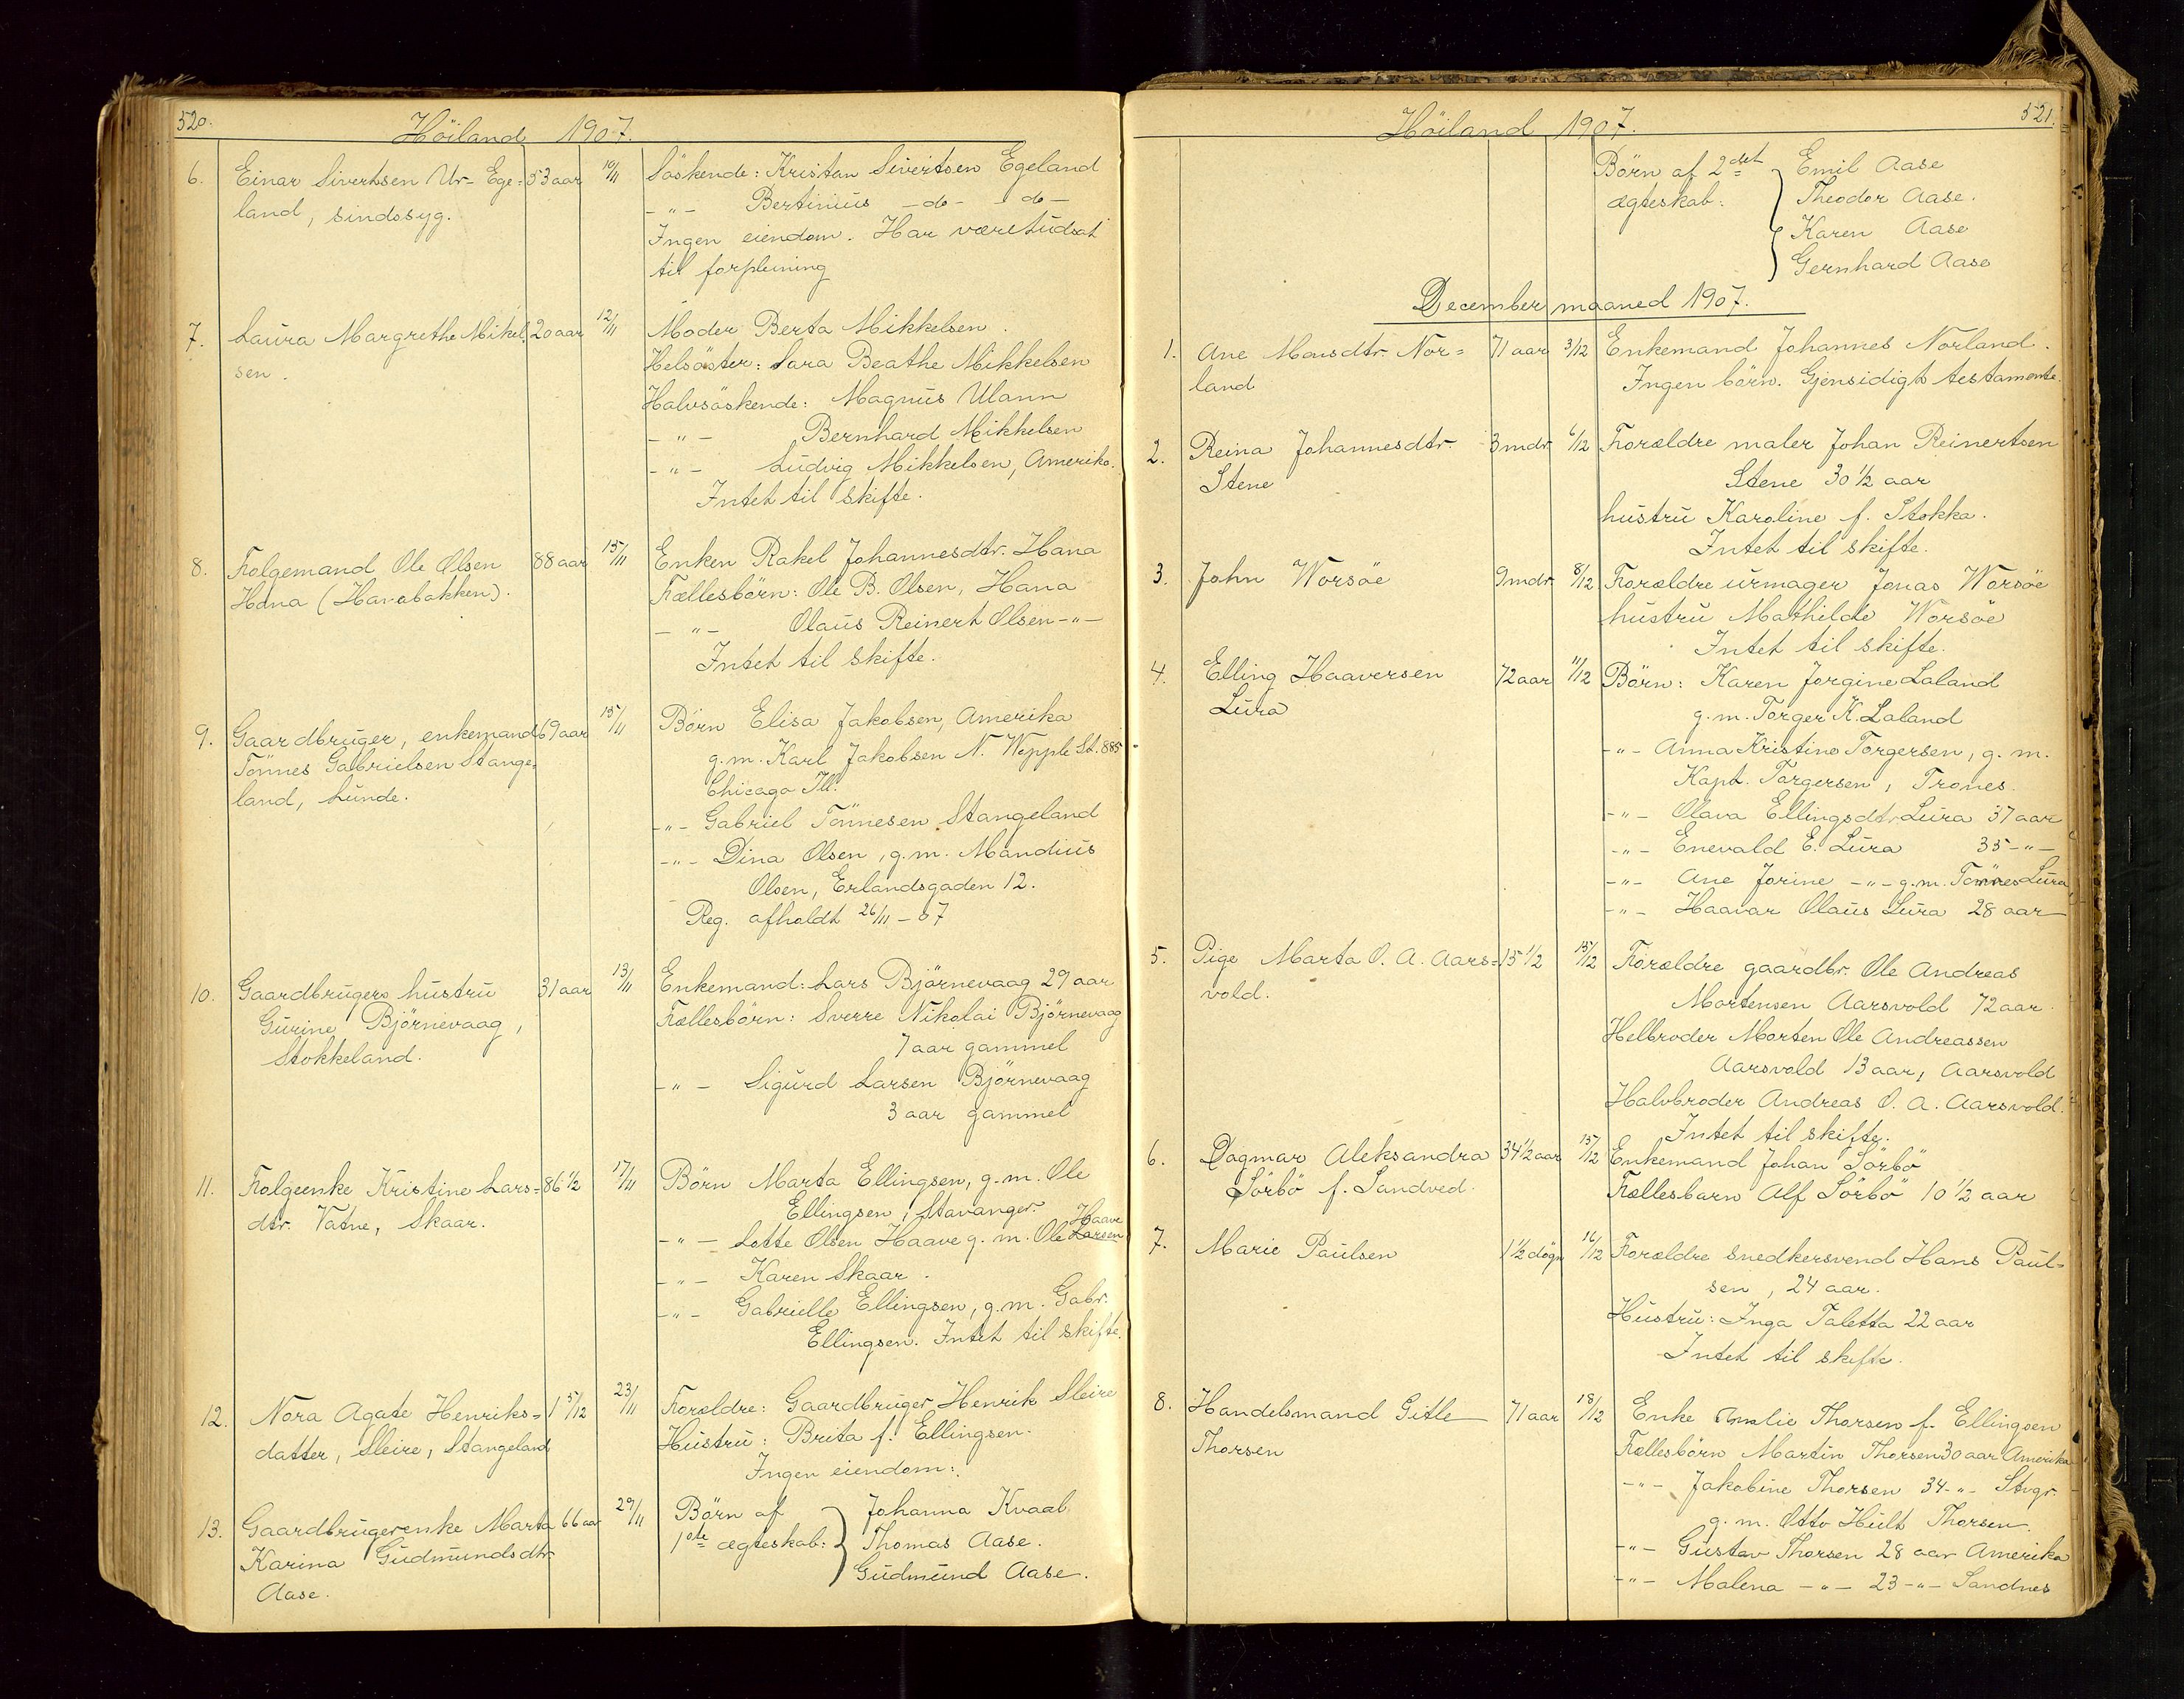 520.
Höiland 1907.
6. Einar Sivertsen Ur- Ege= 53 aar 10/11 Söskende: Kristan Sivertsen Egeland
land, sindssyg. -"- Bertinius -do- -do-
Ingen eiendom. Har været udsat
til forpleining
7. Laura Margrethe Mikel= 20 aar 12/11 Moder Berta Mikkelsen.
sen. Helsöster: Sara Beathe Mikkelsen
Halvsöskende: Magnus Ulann
-"- Bernhard Mikkelsen
-"- Ludvig Mikkelsen, Amerika.
Intet til skifte.
8. Folgemand Ole Olsen 88 aar 15/11 Enken Rakel Johannesdtr. Hana
Hana (Hanabakken). Fællesbörn: Ole B. Olsen, Hana
-"- Olaus Reinert Olsen -"-
Intet til skifte.
9. Gaardbruger, enkemand 69 aar 15/11 Börn Elisa Jakobsen, Amerika
Tönnes Gabrielsen Stange= g.m. Karl Jakobsen N. Wepple St. 885
land, Lunde. Chicago Ill.
-"- Gabriel Tönnesen Stangeland
-"- Dina Olsen, g.m. Mandius
Olsen, Erlandsgaden 12.
Reg. afholdt 26/11 - 07
10. Gaardbrugers hustru 31 aar 13/11 Enkemand: Lars Björnevaag 29 aar
Gurine Björnevaag, Fællesbörn: Sverre Nikolai Björnevaag
Stokkeland. 7 aar gammel
-"- Sigurd Larsen Björnevaag
3 aar gammel
11. Folgeenke Kristine Lars= 86 1/2 17/11 Börn Marta Ellingsen, g.m. Ole
dtr. Vatne, Skaar. Ellingsen, Stavanger.
Haave
-"- Lotte Olsen Haave g.m. Ole Larsen
-"- Karen Skaar.
-"- Gabrielle Ellingsen, g.m. Gabr.
Ellingsen. Intet til skifte.
12. Nora Agate Henriks= 1 5/12 23/11 Forældre: Gaardbruger Henrik Sleire
datter, Sleire, Stangeland Hustru: Brita f. Ellingsen.
Ingen eiendom.
13. Gaardbrugerenke Marta 66 aar 29/11 Börn af Johanna Kvaal
Karina Gudmundsdtr. 1ste ægteskab: Thomas Aase.
Aase. Gudmund Aase.
521.
Höiland 1907.
Börn af 2det Emil Aase
ægteskab: Theodor Aase.
Karen Aase
Gernhard Aase
December maaned 1907.
1. Ane Monsdtr. Nor= 71 aar 3/12 Enkemand Johannes Norland.
land Ingen börn. Gjensidigt testamente.
2. Reina Johannesdtr. 3 mdr. 6/12 Forældre maler Johan Reinertsen
Stene Stene 30 1/2 aar
hustru Karoline f. Stokka.
Intet til skifte.
3. John Worsöe 9 mdr. 8/12 Forældre urmager Jonas Worsöe
hustru Mathilde Worsöe
Intet til skifte.
4. Elling Haaversen 72 aar 11/12 Börn: Karen Jorgine Laland
Lura g.m. Torger K. Laland
-"- Anna Kristine Torgersen, g.m.
Kapt. Torgersen, Trones.
-"- Olava Ellingsdtr. Lura 37 aar
-"- Enevald E. Lura 35 -"-
-"- Ane Jorine -"- g.m. Tönnes Lura
-"- Haavar Olaus Lura 28 aar
5. Pige Marta O. A. Aars= 15 1/2 15/12 Forældre gaardbr. Ole Andreas
vold. Mortensen Aarsvold 72 aar.
Helbroder Morten Ole Andreassen
Aarsvold 13 aar, Aarsvold
Halvbroder Andreas O. A. Aarsvold.
Intet til skifte.
6. Dagmar Aleksandra 34 1/2 aar 15/12 Enkemand Johan Sörbö
Sörbö f. Sandved. Fællesbarn Alf Sörbö 10 1/2 aar
7. Marie Paulsen 1 1/2 dögn 16/12 Forældre snedkersvend Hans Paul=
sen, 24 aar.
Hustru: Inga Taletta 22 aar
Intet til skifte.
8. Handelsmand Gitle 71 aar 18/12 Enke Amalie Thorsen f. Ellingsen
Thorsen Fællesbörn Martin Thorsen 30 aar Amerika
-"- Jakobine Thorsen 34 -"- Stvgr.
g.m. Otto Hult Thorsen.
-"- Gustav Thorsen 28 aar Amerika
-"- Malena -"- 23 -"- Sandnes